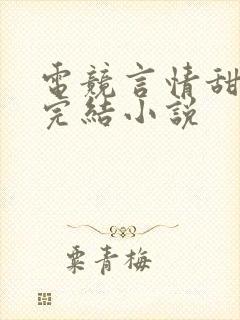 電競言情甜
完結小說
粟青梅